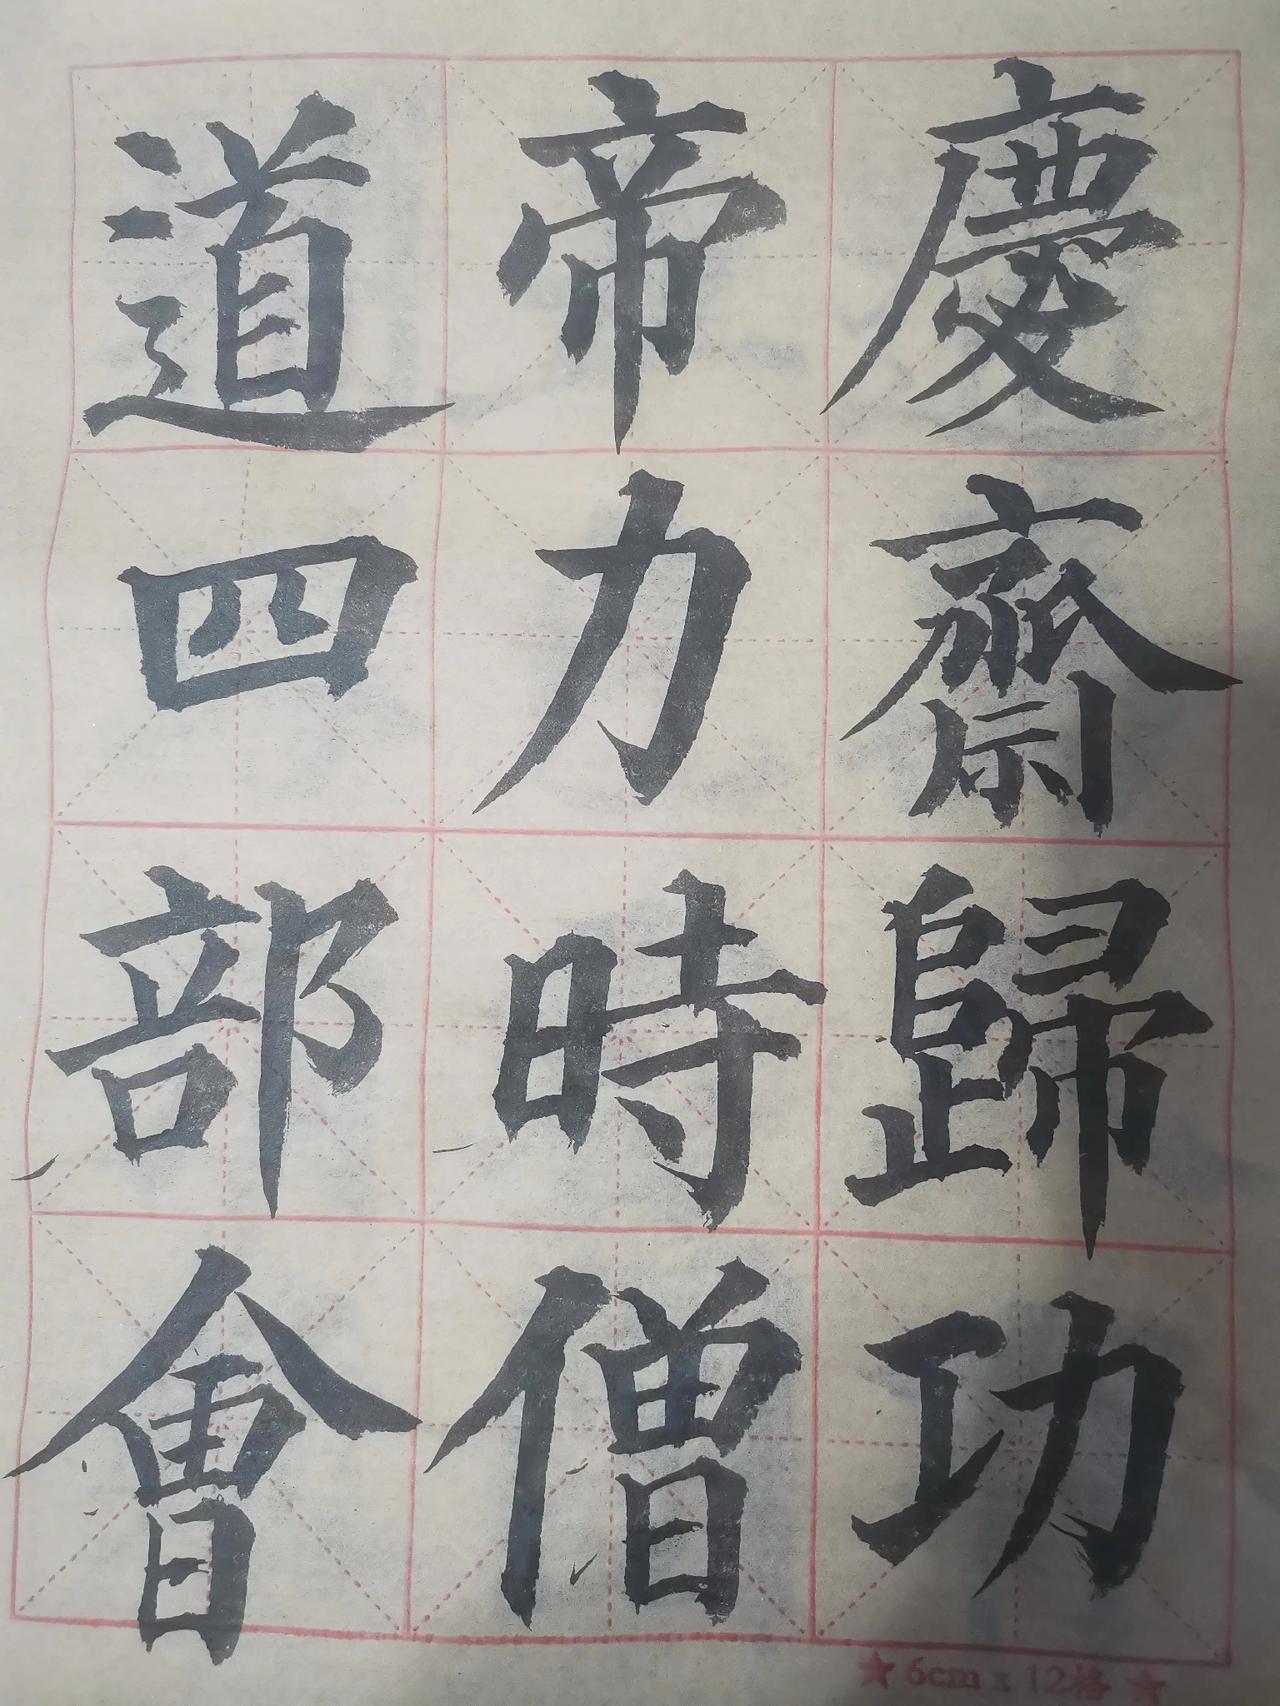 慶齋歸功
帝力時僧
道四部會
★ 6cm x 12格 ★